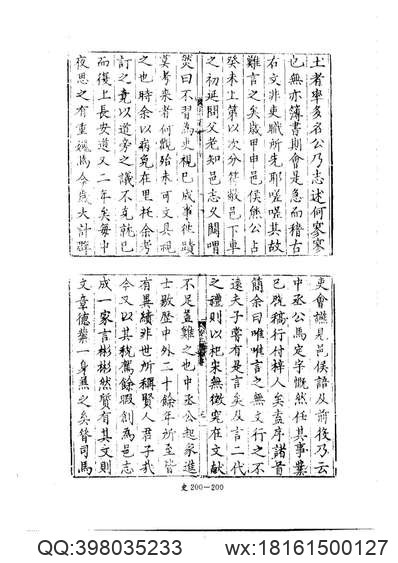 土者率多名公乃志述何寥寥
也無亦簿書期會是急而稽古
右文非吏職所先耶嗟嗟其故
難言之矣歲甲申邑侯熊公占
癸未上第以次分符敝邑下車
之初延問父老知邑志久闕喟
然曰不習為吏視已成事往蹟
莫考來者何觀殆未可文具視
之也時余以病免在里托余考
訂之竟以道旁之議不克就已
而復上長安道又二年矣每中
夜思之有重媿焉今歲大計群
吏會謁見邑侯語及前後乃云
中丞公馬定宇慨然任其事業
已脫稿行付梓人矣盍序諸首
簡余曰唯唯言之無文行之不
遠夫子嘗有是言矣及言二代
之禮則以杞宋無徵寃在文献
不足蓋難之也中丞公起家進
士敭歷中外二十餘年所至皆
有異績非世所稱賢人君子哉
今又以其稅駕餘暇創為邑志
成一家言彬彬然質有其文則
文章德業一身蕪之矣晉司馬
三
史 200—200
QQ:398035233
wx:18161500127